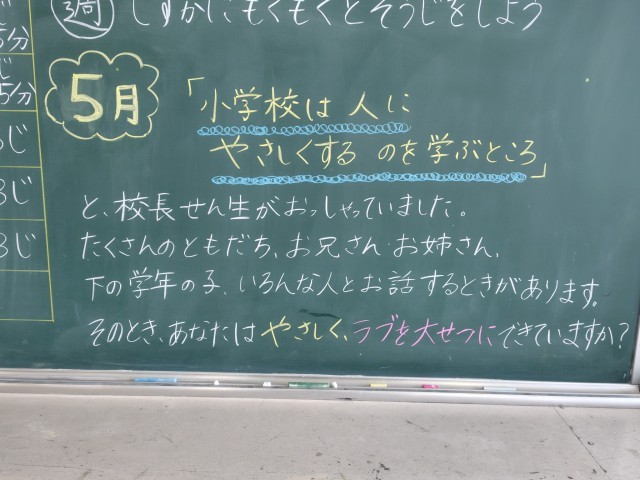 週 しずかにもくもくとそうじをしよう
5分
じ
5分
じ
じ
じ
5月
「小学校は 人に
やさしくする のを学ぶところ」
と、校長せん生がおっしゃっていました。
たくさんのともだち、お兄さん・お姉さん、
下の学年の子、いろんな人とお話するときがあります。
そのとき、あなたは やさしく、ラブを大せつにできていますか?